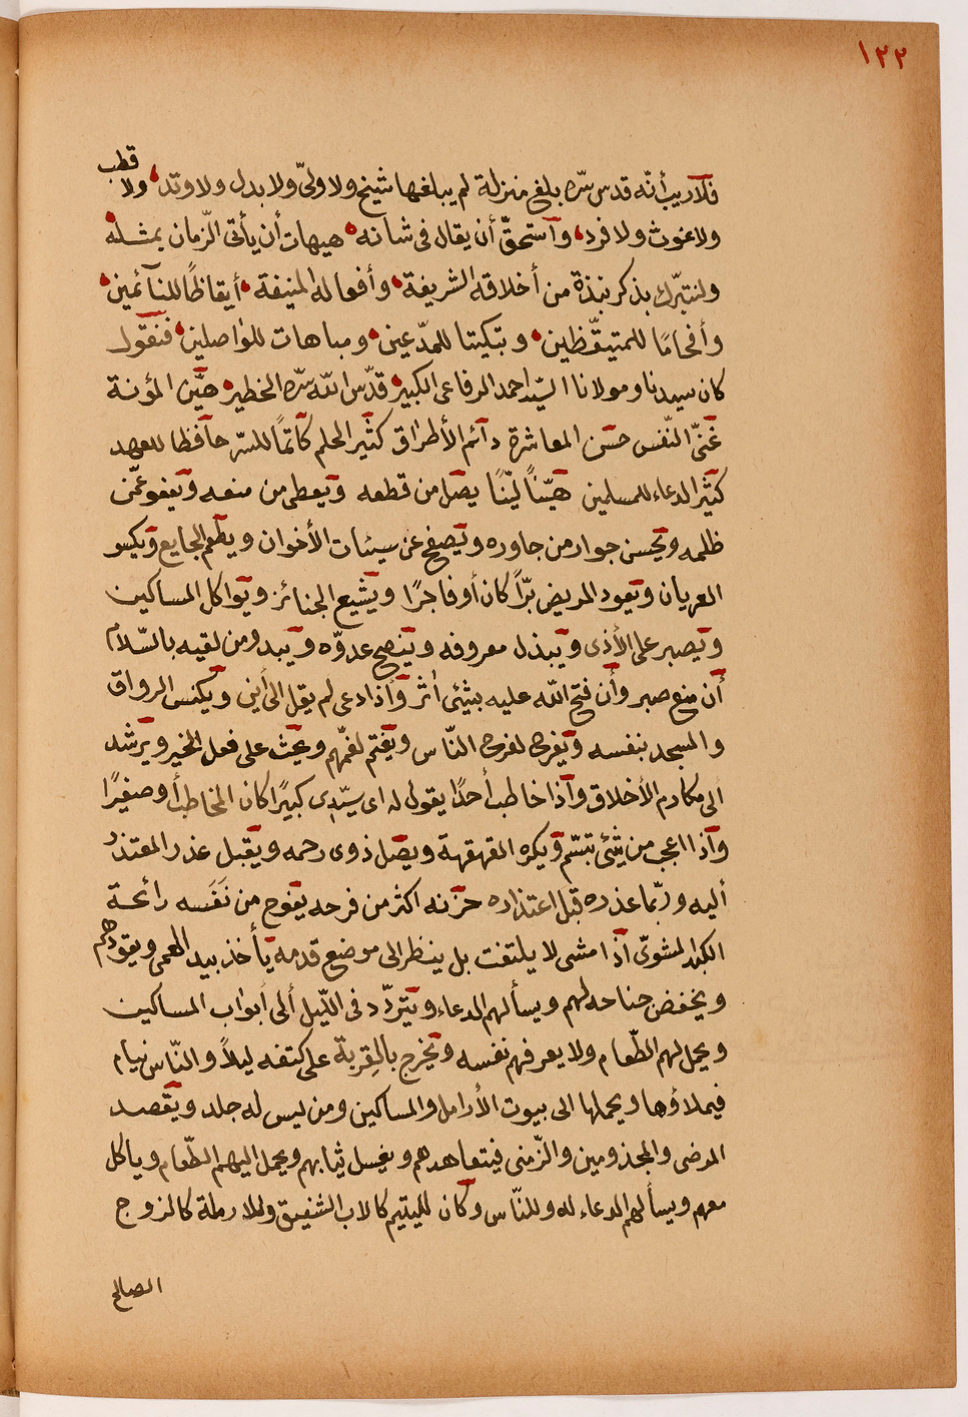 ١٢٢
فلاريب أنّه قدس سّره بلغ منزلة لم يبلغها شيخ ولا ولىّ ولا بدل ولا وتد، ولا قطب
ولاغوث ولا فرد، وآستحقّ أن يقال فى شانه، هيهات أن يأتى الّزمان بمثله
ولنتبّرك بذكر نبذة من أخلاقه الشريفة، وأفعاله المنيفة، أيقاظًا للنآئمين،
وأفحامًا للمتيقّظين، وتبكيتا للمدّعين، ومباهات للواصلين، فنقول
كان سيدنا ومولانا السّيد احمد الرفاعى الكبير، قدّس اللّه سّره الخطير، هيّن المؤنة
غنىّ النّفس حسن المعاشرة دآئم الأطراق كثير الحلم كآتمًا للسّر حآفظا للعهد
كثير الدعاء للمسلمين هيّنًا ليّنًا يصل من قطعه ويعطى من منعه ويعفو عمّن
ظلمه ويحسن جوار من جاوره ويصفح عن سيئات الأخوان ويطعم الجايع ويكسو
العريان ويعود المريض برًّا كان أو فاجرًا ويشيع الجنائز ويواكل المساكين
ويصبر على الأذى ويبذل معروفه وينصح عدوّه ويبدو من لقيه بالسّلام
أن منع صبر وأن فتح اللّه عليه بشئى اٰثر وأذا دعى لم يقل الى أين ويكنس الرواق
والمسجد بنفسه ويفرح لفرح النّاس ويغتم لغمّهم ويحث على فعل الخير ويرشد
ألى مكارم الأخلاق وآذا خاطب أحدًا يقول له اى سيّدى كبيرًا كان المخاطب أو صغيرًا
وآذا اعجب من شئى تبسّم ويكره القهقهة ويصل ذوى رحمه ويقبل عذر المعتذر
أليه وربّما عذره قبل اعتذاره حزنه اكثر من فرحه يفوح من نَفَسه رائحة
الكبد المشوىّ اذا مشى لا يلتفت بل ينظر الى موضع قدمه يأخذ بيد العمى ويقودهم
ويخفض جناحه لهم ويسألهم الدعاء ويتردّد فى اللّيل ألى أبواب المساكين
ويحمل لهم الطّعام ولا يعرفهم نفسه ويخرج بالقِربة على كتفه ليلاً والنّاس نيام
فيملاؤها ويحملها الى بيوت الأرامل والمساكين ومن ليس له جلد ويقصد
المرضى والمجذومين والزّمنى فيتعاهدهم ويغسل ثيابهم ويحمل اليهم الطّعام وياكل
معهم ويسألهم الدعاء له وللنّاس وكان لليتيم كالاب الشفيق وللارملة كالزوج
الصالح